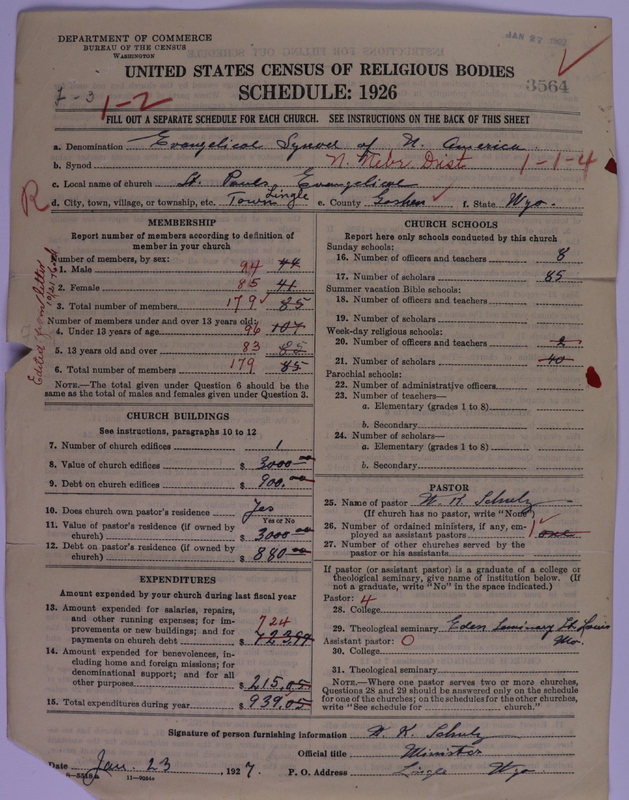 DEPARTMENT OF COMMERCE
BUREAU OF THE CENSUS
WASHINGTON
JAN 27
UNITED STATES CENSUS OF RELIGIOUS BODIES
SCHEDULE: 1926
3564
1-2
FILL OUT A SEPARATE SCHEDULE FOR EACH CHURCH. SEE INSTRUCTIONS ON THE BACK OF THIS SHEET
a. Denomination Evangelical Synod of N. America
b. Synod N. Nebr. Dist 1-1-4
c. Local name of church St. Pauls Evangelical
R d. City, town, village, or township, etc. Town Lingle e. County Goshen f. State Wyo.
MEMBERSHIP
Report number of members according to definition of
member in your church
Number of members, by sex:
1. Male 94 44
2. Female 85 41
3. Total number of members 179 85
Number of members under and over 13 years old:
4. Under 13 years of age 96 107
5. 13 years old and over 83 85
6. Total number of members 179 85
NOTE.—The total given under Question 6 should be the
same as the total of males and females given under Question 3.
Edited from letter
CHURCH BUILDINGS
See instructions, paragraphs 10 to 12
7. Number of church edifices 1
8. Value of church edifices $ 3000.00
9. Debt on church edifices $ 900.00
10. Does church own pastor's residence? Yes
Yes or No
11. Value of pastor's residence (if owned by
church) $ 3000.00
12. Debt on pastor's residence (if owned by
church) $ 880.00
EXPENDITURES
Amount expended by your church during last fiscal year
13. Amount expended for salaries, repairs,
and other running expenses; for im-
provements or new buildings; and for
payments on church debt 724 $ 723.99
14. Amount expended for benevolences, in-
cluding home and foreign missions; for
denominational support; and for all
other purposes $ 215.05
15. Total expenditures during year $ 939.05
CHURCH SCHOOLS
Report here only schools conducted by this church
Sunday schools:
16. Number of officers and teachers 8
17. Number of scholars 85
Summer vacation Bible schools:
18. Number of officers and teachers
19. Number of scholars
Week-day religious schools:
20. Number of officers and teachers 2
21. Number of scholars 40
Parochial schools:
22. Number of administrative officers
23. Number of teachers—
a. Elementary (grades 1 to 8)
b. Secondary
24. Number of scholars—
a. Elementary (grades 1 to 8)
b. Secondary
PASTOR
25. Name of pastor W. K. Schulz
(If church has no pastor, write "None")
26. Number of ordained ministers, if any, em-
ployed as assistant pastors
27. Number of other churches served by the
pastor or his assistants 1 one
If pastor (or assistant pastor) is a graduate of a college or
theological seminary, give name of institution below. (If
not a graduate, write "No" in the space indicated.)
Pastor: 4
28. College
29. Theological seminary Eden Seminary St. Louis
Mo.
Assistant pastor: 0
30. College
31. Theological seminary
NOTE.—Where one pastor serves two or more churches,
Questions 28 and 29 should be answered only on the schedule
for one of the churches; on the schedules for the other churches,
write "See schedule for church."
Signature of person furnishing information W. K. Schulz
Official title Minister
Date Jan. 23, 1927. P. O. Address Lingle Wyo.